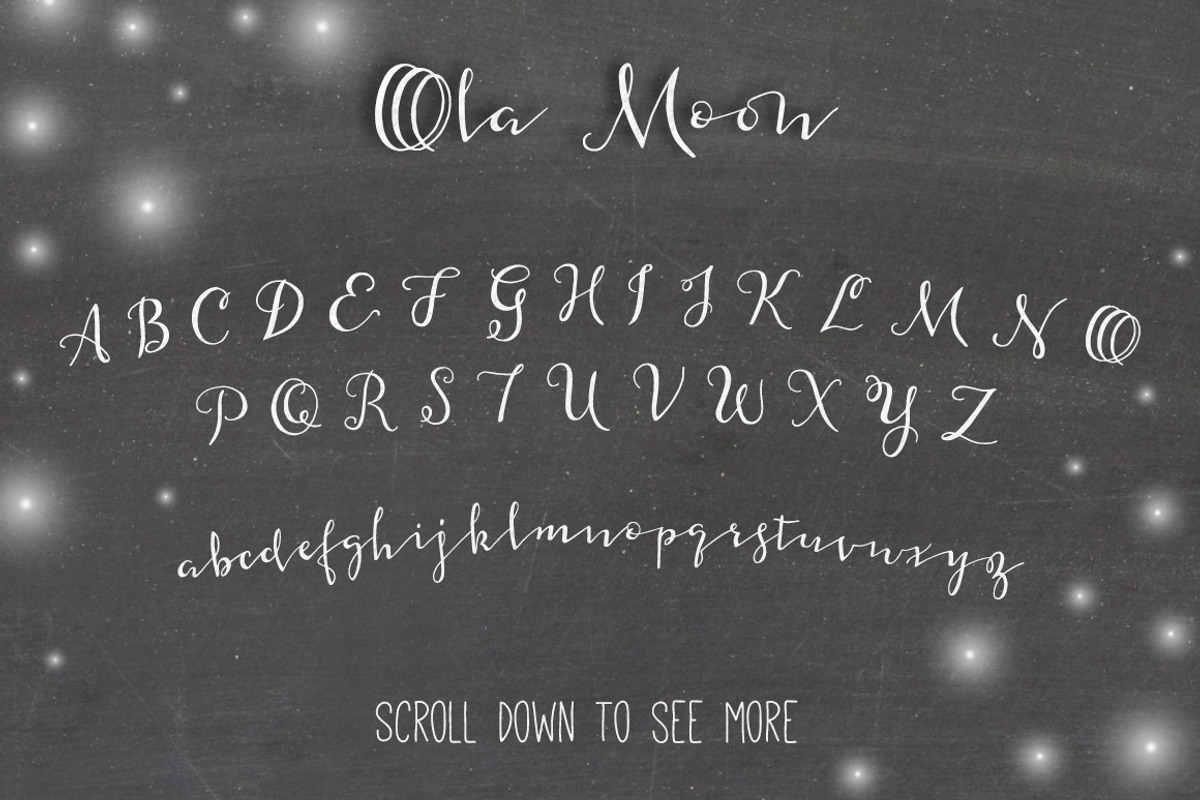 Ola Moon
A B C D E F G H I J K L M N O
P Q R S T U V W X Y Z
abcdefghijklmnopqrstuvwxyz
SCROLL DOWN TO SEE MORE